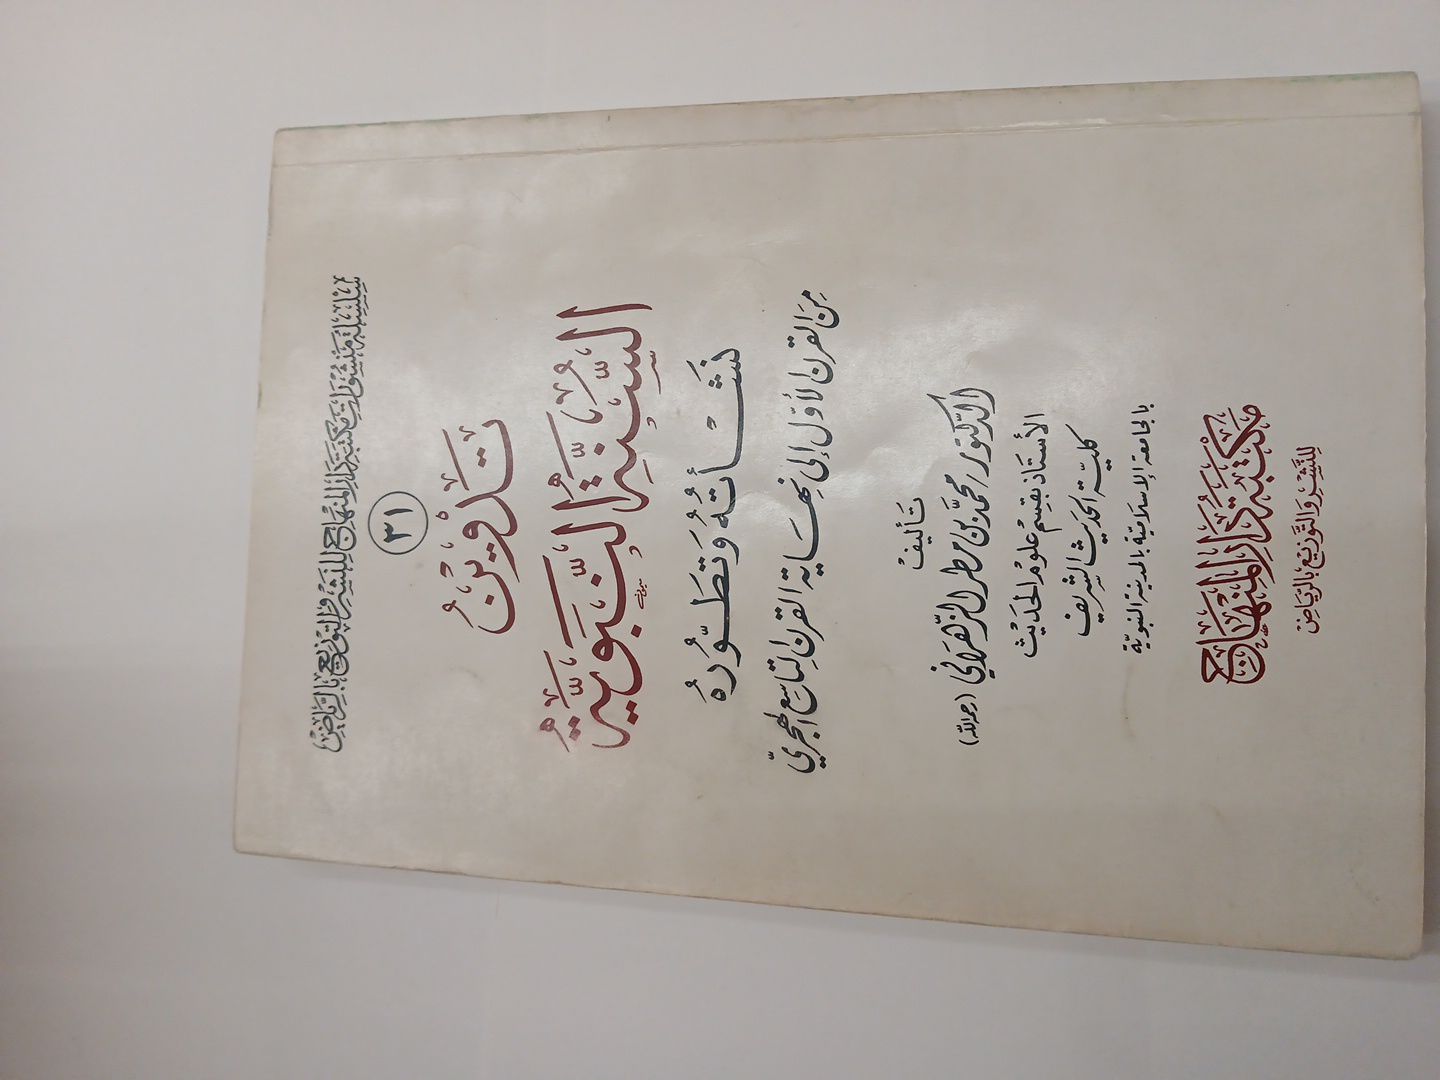 سِلْسِلَةُ مَنْشُورَاتِ مَكْتَبَةِ دَارِ الْمِنْهَاجِ لِلنَّشْرِ وَالتَّوْزِيعِ بِالرِّيَاضِ
(٣١)
تَدْوِينُ
السُّنَّةِ النَّبَوِيَّةِ
نَشْأَتُهُ وَتَطَوُّرُهُ
مِنَ القَرنِ الأَوَّلِ إِلى نِهَايَةِ القَرنِ التَّاسِعِ الهِجْرِيِّ
تَأْلِيفُ
الدّكتور محمّد بن مطر الزّهراني (رحمه الله)
الأستاذ بقسم علوم الحديث
كليّة الحديث الشريف
بالجامعة الإسلاميّة بالمدينة النبويّة
مكتبة دار المنهاج
لِلنَّشْرِ وَالتَّوْزِيعِ بِالرِّيَاضِ